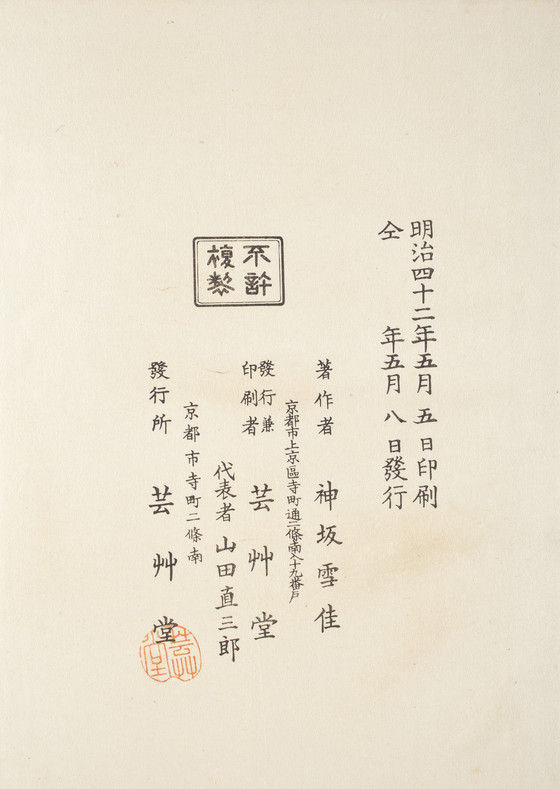 明治四十二年五月五日印刷
仝年五月八日發行
不許
複製
著作者 神坂雪佳
京都市上京區寺町通二條南入十九番戸
發行兼
印刷者 芸艸堂
代表者 山田直三郎
京都市寺町二條南
發行所 芸艸堂
芸艸
堂